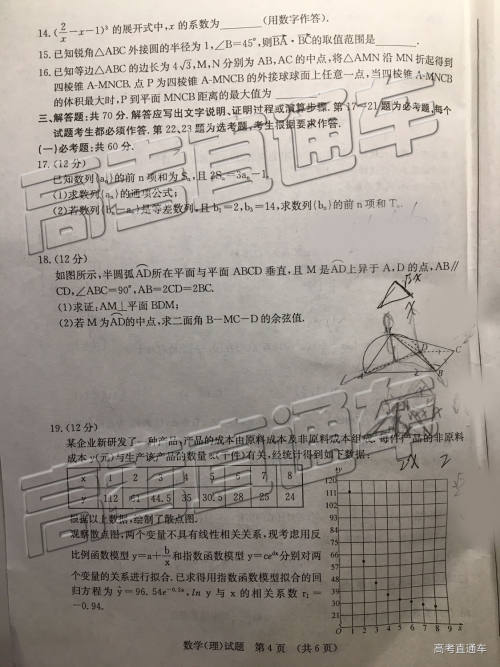 14. (2/x－x－1)³ 的展开式中,x 的系数为______(用数字作答).
15. 已知锐角△ABC 外接圆的半径为 1,∠B=45°,则BA·BC的取值范围是______.
16. 已知等边△ABC 的边长为 4√3,M,N 分别为 AB,AC 的中点,将△AMN 沿 MN 折起得到
四棱锥 A-MNCB. 点 P 为四棱锥 A-MNCB 的外接球球面上任意一点,当四棱锥 A-MNCB
的体积最大时,P 到平面 MNCB 距离的最大值为______
三、解答题:共 70 分. 解答应写出文字说明、证明过程或演算步骤. 第 17～21 题为必考题,每个
试题考生都必须作答. 第 22、23 题为选考题,考生根据要求作答.
(一)必考题:共 60 分.
17. (12 分)
已知数列{aₙ}的前 n 项和为 Sₙ,且 2Sₙ=3aₙ－1,
(1)求数列{aₙ}的通项公式;
(2)若数列{bₙ－aₙ}是等差数列,且 b₁=2,b₃=14,求数列{bₙ}的前 n 项和 Tₙ.
18. (12 分)
如图所示,半圆弧AD所在平面与平面 ABCD 垂直,且 M 是AD上异于 A,D 的点,AB∥
CD,∠ABC=90°,AB=2CD=2BC.
(1)求证:AM⊥平面 BDM;
(2)若 M 为AD的中点,求二面角 B－MC－D 的余弦值.
19. (12 分)
某企业新研发了一种产品,产品的成本由原料成本及非原料成本组成. 每件产品的非原料
成本 y(元)与生产该产品的数量 x(千件)有关,经统计得到如下数据:
x 1 2 3 4 5 6 7 8
y 112 61 44.5 35 30.5 28 25 24
根据以上数据,绘制了散点图.
观察散点图,两个变量不具有线性相关关系,现考虑用反
比例函数模型 y=a+b/x 和指数函数模型 y=ce^dx 分别对两
个变量的关系进行拟合. 已求得用指数函数模型拟合的回
归方程为 ŷ=96.54e^-0.2x,ln y 与 x 的相关系数 r₁=
－0.94.
数学(理)试题 第 4 页 (共 6 页)
高考直通车